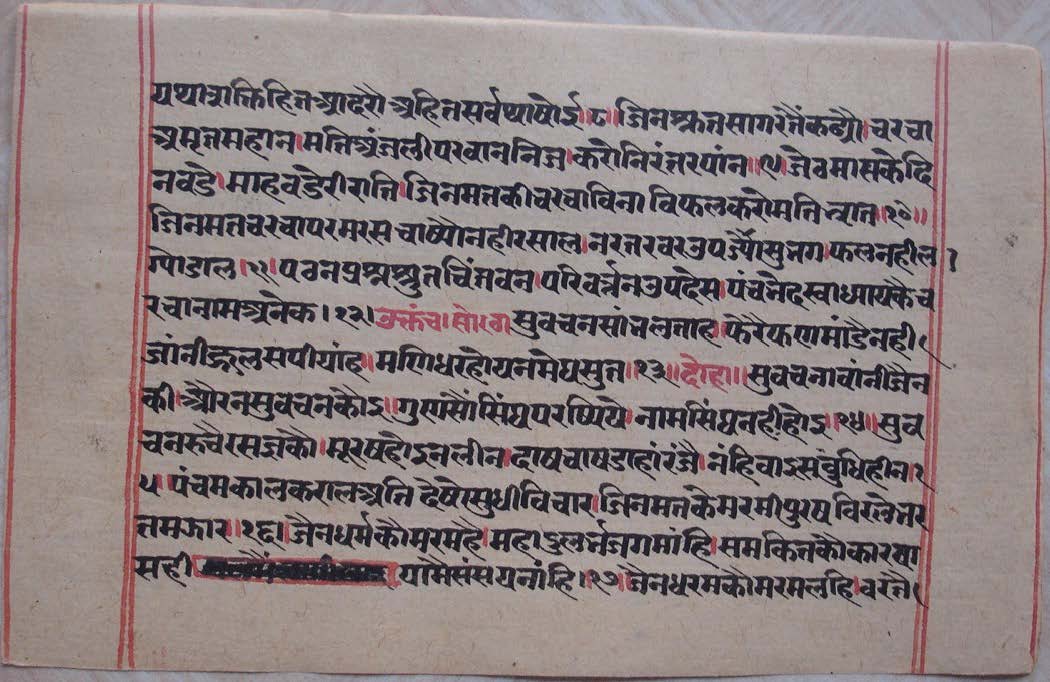 यथाशक्तिहितआदरौ अहितसर्वथाषोइ॥८॥ जिनश्रुतसागरतैंकढ्यौ। चरचा
अमृतमहान। मतिअंजलीपरवाननिज। करोनिरंतरपांन॥९॥ जेवमासकेदि
नवडे। माहवडेरीराति। जिनमतकीचरचाविना। विफलकरोमतिभ्रात॥१०॥
जिनमतचरचापरमरस चाष्यौनहीरसाल। नरतरवरउपज्यौसुभग। फलनहील
ग्योडाल।११। पठनप्रश्नश्रुतचिंतवन। परिवर्त्तनउपदेस। पंचभेदस्वाध्यायकैच
रचानामअनेक।१२। उक्तंच।सोरठा सुवचनसांभलताह। फेरैफणमांडैनही।
जांनीकुलसपीयांह। मणिधरहोयनमेघसुत॥१३॥दोहा॥ सुवचनावांनीजैन
की। औरनसुवचनकोइ। गुणसौंसिंधुपरष्यिये। नामसिंधुनहीहोइ॥१४॥ सुव
चनरुचैरसज्ञकौ। मूरषहोइनलीन। दाषचाषडाहांरंजै। नंहिवाइसबुधिहीन।१
५। पंचमकालकरालअति देषोसुधीविचार। जिनमतकेमरमीपुरष विरलेभर
तमझार॥१६। जैनधर्मकौमरमहै। महादुर्लभजगमांहि। समकितकौकारणा
सही यामैसंसयनांहि।१७। जैनधरमकोमरमलहि। वरतै।